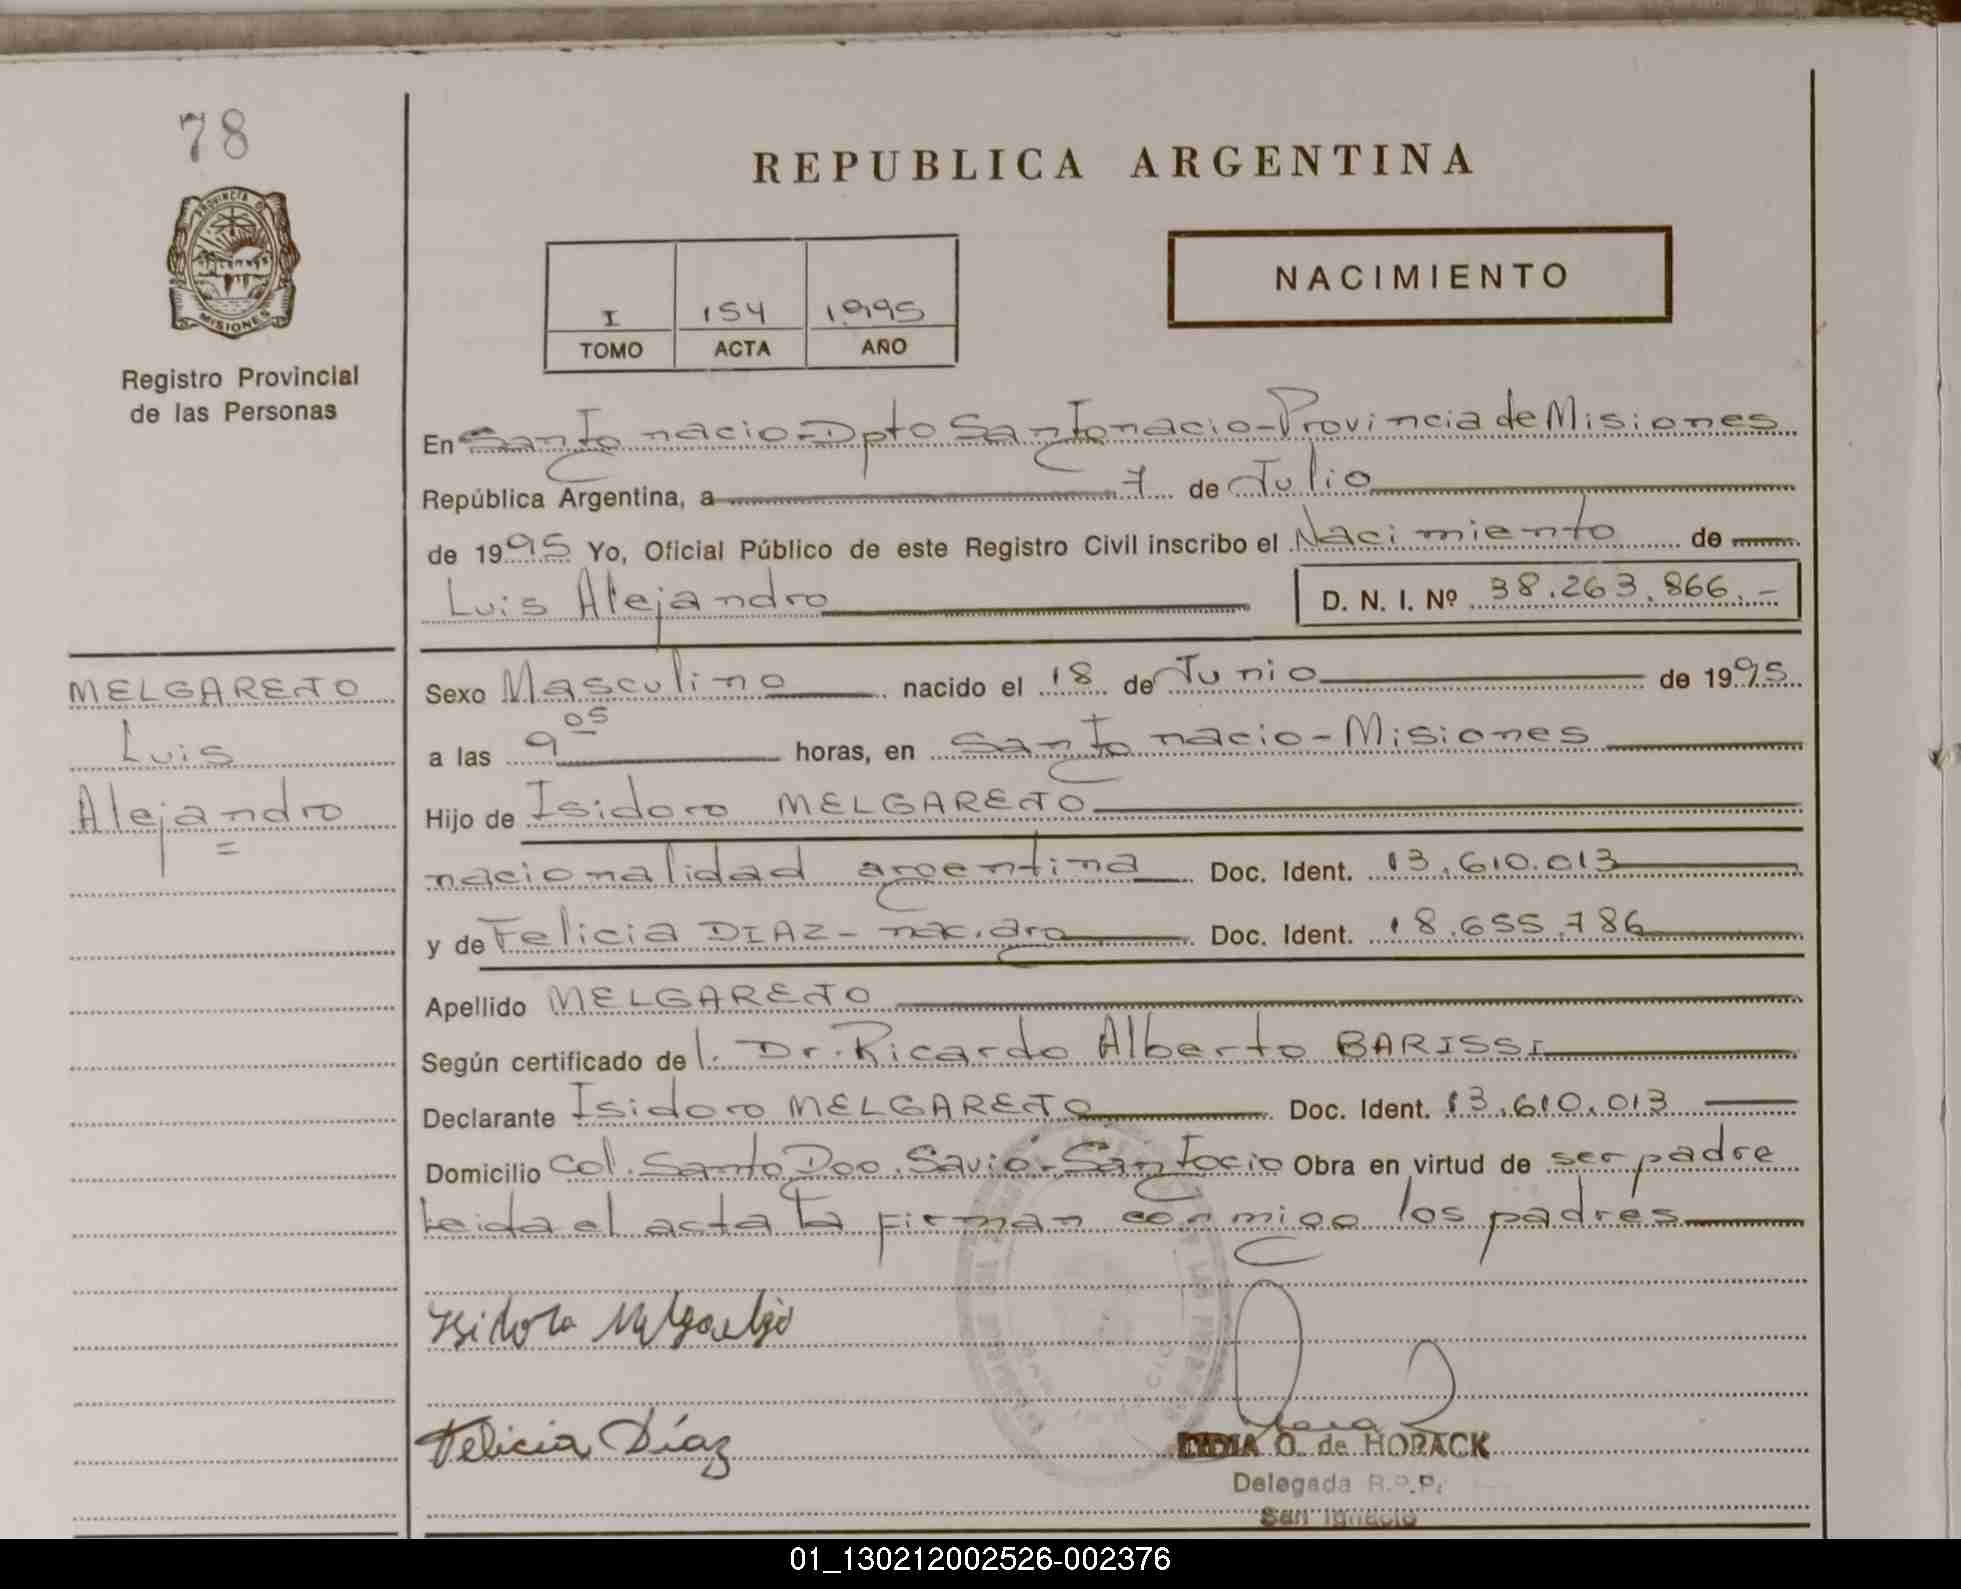 78
PROVINCIA D
MISIONES
Registro Provincial
de las Personas
REPUBLICA ARGENTINA
I 154 1995
TOMO ACTA AÑO
NACIMIENTO
En San Ignacio - Dpto San Ignacio - Provincia de Misiones
República Argentina, a 7 de Julio
de 1995 Yo, Oficial Público de este Registro Civil inscribo el Nacimiento de
Luis Alejandro D. N. I. Nº 38.263.866.-
MELGAREJO
Luis
Alejandro
Sexo Masculino nacido el 18 de Junio de 1995
a las 9 05 horas, en San Ignacio - Misiones
Hijo de Isidoro MELGAREJO
nacionalidad argentina Doc. Ident. 13.610.013
y de Felicia DIAZ - nac. arg Doc. Ident. 18.655.786
Apellido MELGAREJO
Según certificado del. Dr. Ricardo Alberto BARISSI
Declarante Isidoro MELGAREJO Doc. Ident. 13.610.013
Domicilio Col. Santo Dgo. Savio - San Igcio Obra en virtud de ser padre
Leida el acta la firman conmigo los padres
Isidoro Melgarejo
Felicia Díaz
O. de HORACK
Delegada R.P.P.
San Ignacio
01_130212002526-002376